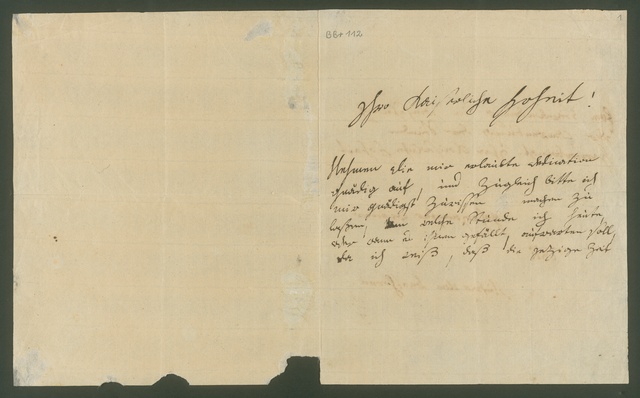 1
BBr 112
Ihro Kaiserliche Hoheit!
Nehmen die mir erlaubte dedication
gnädig auf, und zugleich bitte ich
mir gnädigst zu wissen machen zu
laßen, um welche Stunde ich heute,
oder wann es ihnen gefällt, aufwarten soll,
da ich weiß, daß die jezige Zeit